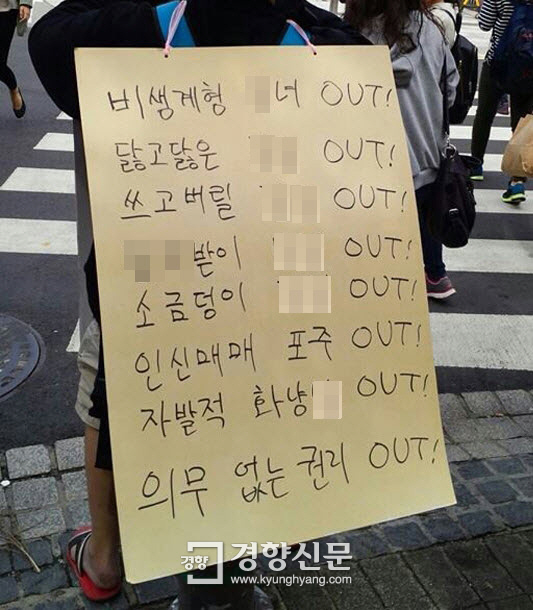 비생계형 녀 OUT!
닳고닳은 OUT!
쓰고버릴 OUT!
받이 OUT!
소금덩이 OUT!
인신매매 포주 OUT!
자발적 화냥 OUT!
의무 없는 권리 OUT!
경향 경향신문
www.kyunghyang.com